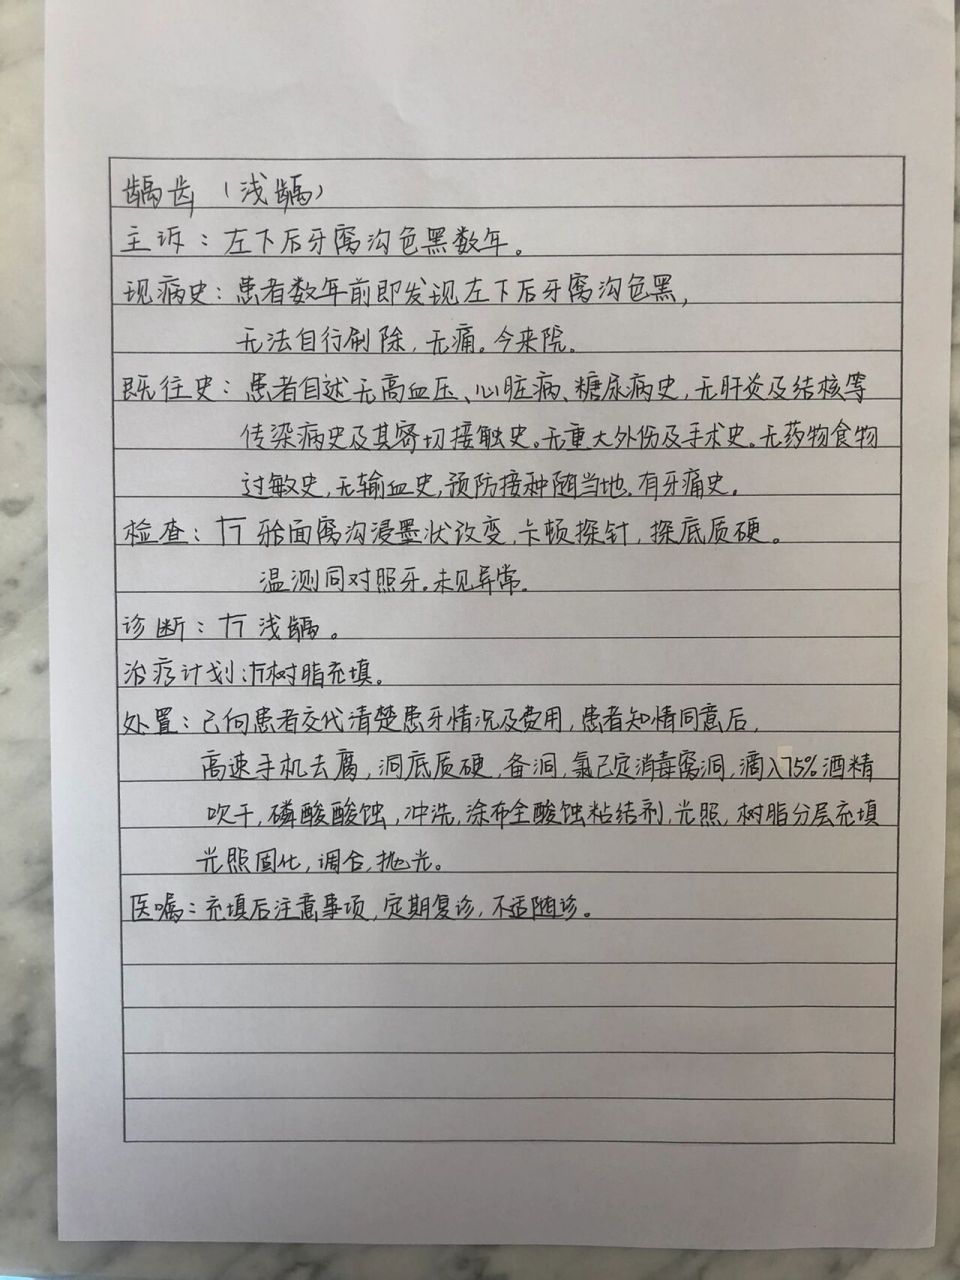 龋齿（浅龋）
主诉：左下后牙窝沟色黑数年。
现病史：患者数年前即发现左下后牙窝沟色黑，
无法自行刷除，无痛。今来院。
既往史：患者自述无高血压、心脏病、糖尿病史，无肝炎及结核等
传染病史及其密切接触史。无重大外伤及手术史。无药物食物
过敏史，无输血史，预防接种随当地。有牙痛史。
检查：𬌗面窝沟浸墨状改变，卡顿探针，探底质硬。
温测同对照牙。未见异常。
诊断：浅龋。
治疗计划：树脂充填。
处置：已向患者交代清楚患牙情况及费用，患者知情同意后，
高速手机去腐，洞底质硬，备洞，氯己定消毒窝洞，滴入75%酒精
吹干，磷酸酸蚀，冲洗，涂布全酸蚀粘结剂，光照，树脂分层充填
光照固化，调合，抛光。
医嘱：充填后注意事项，定期复诊，不适随诊。